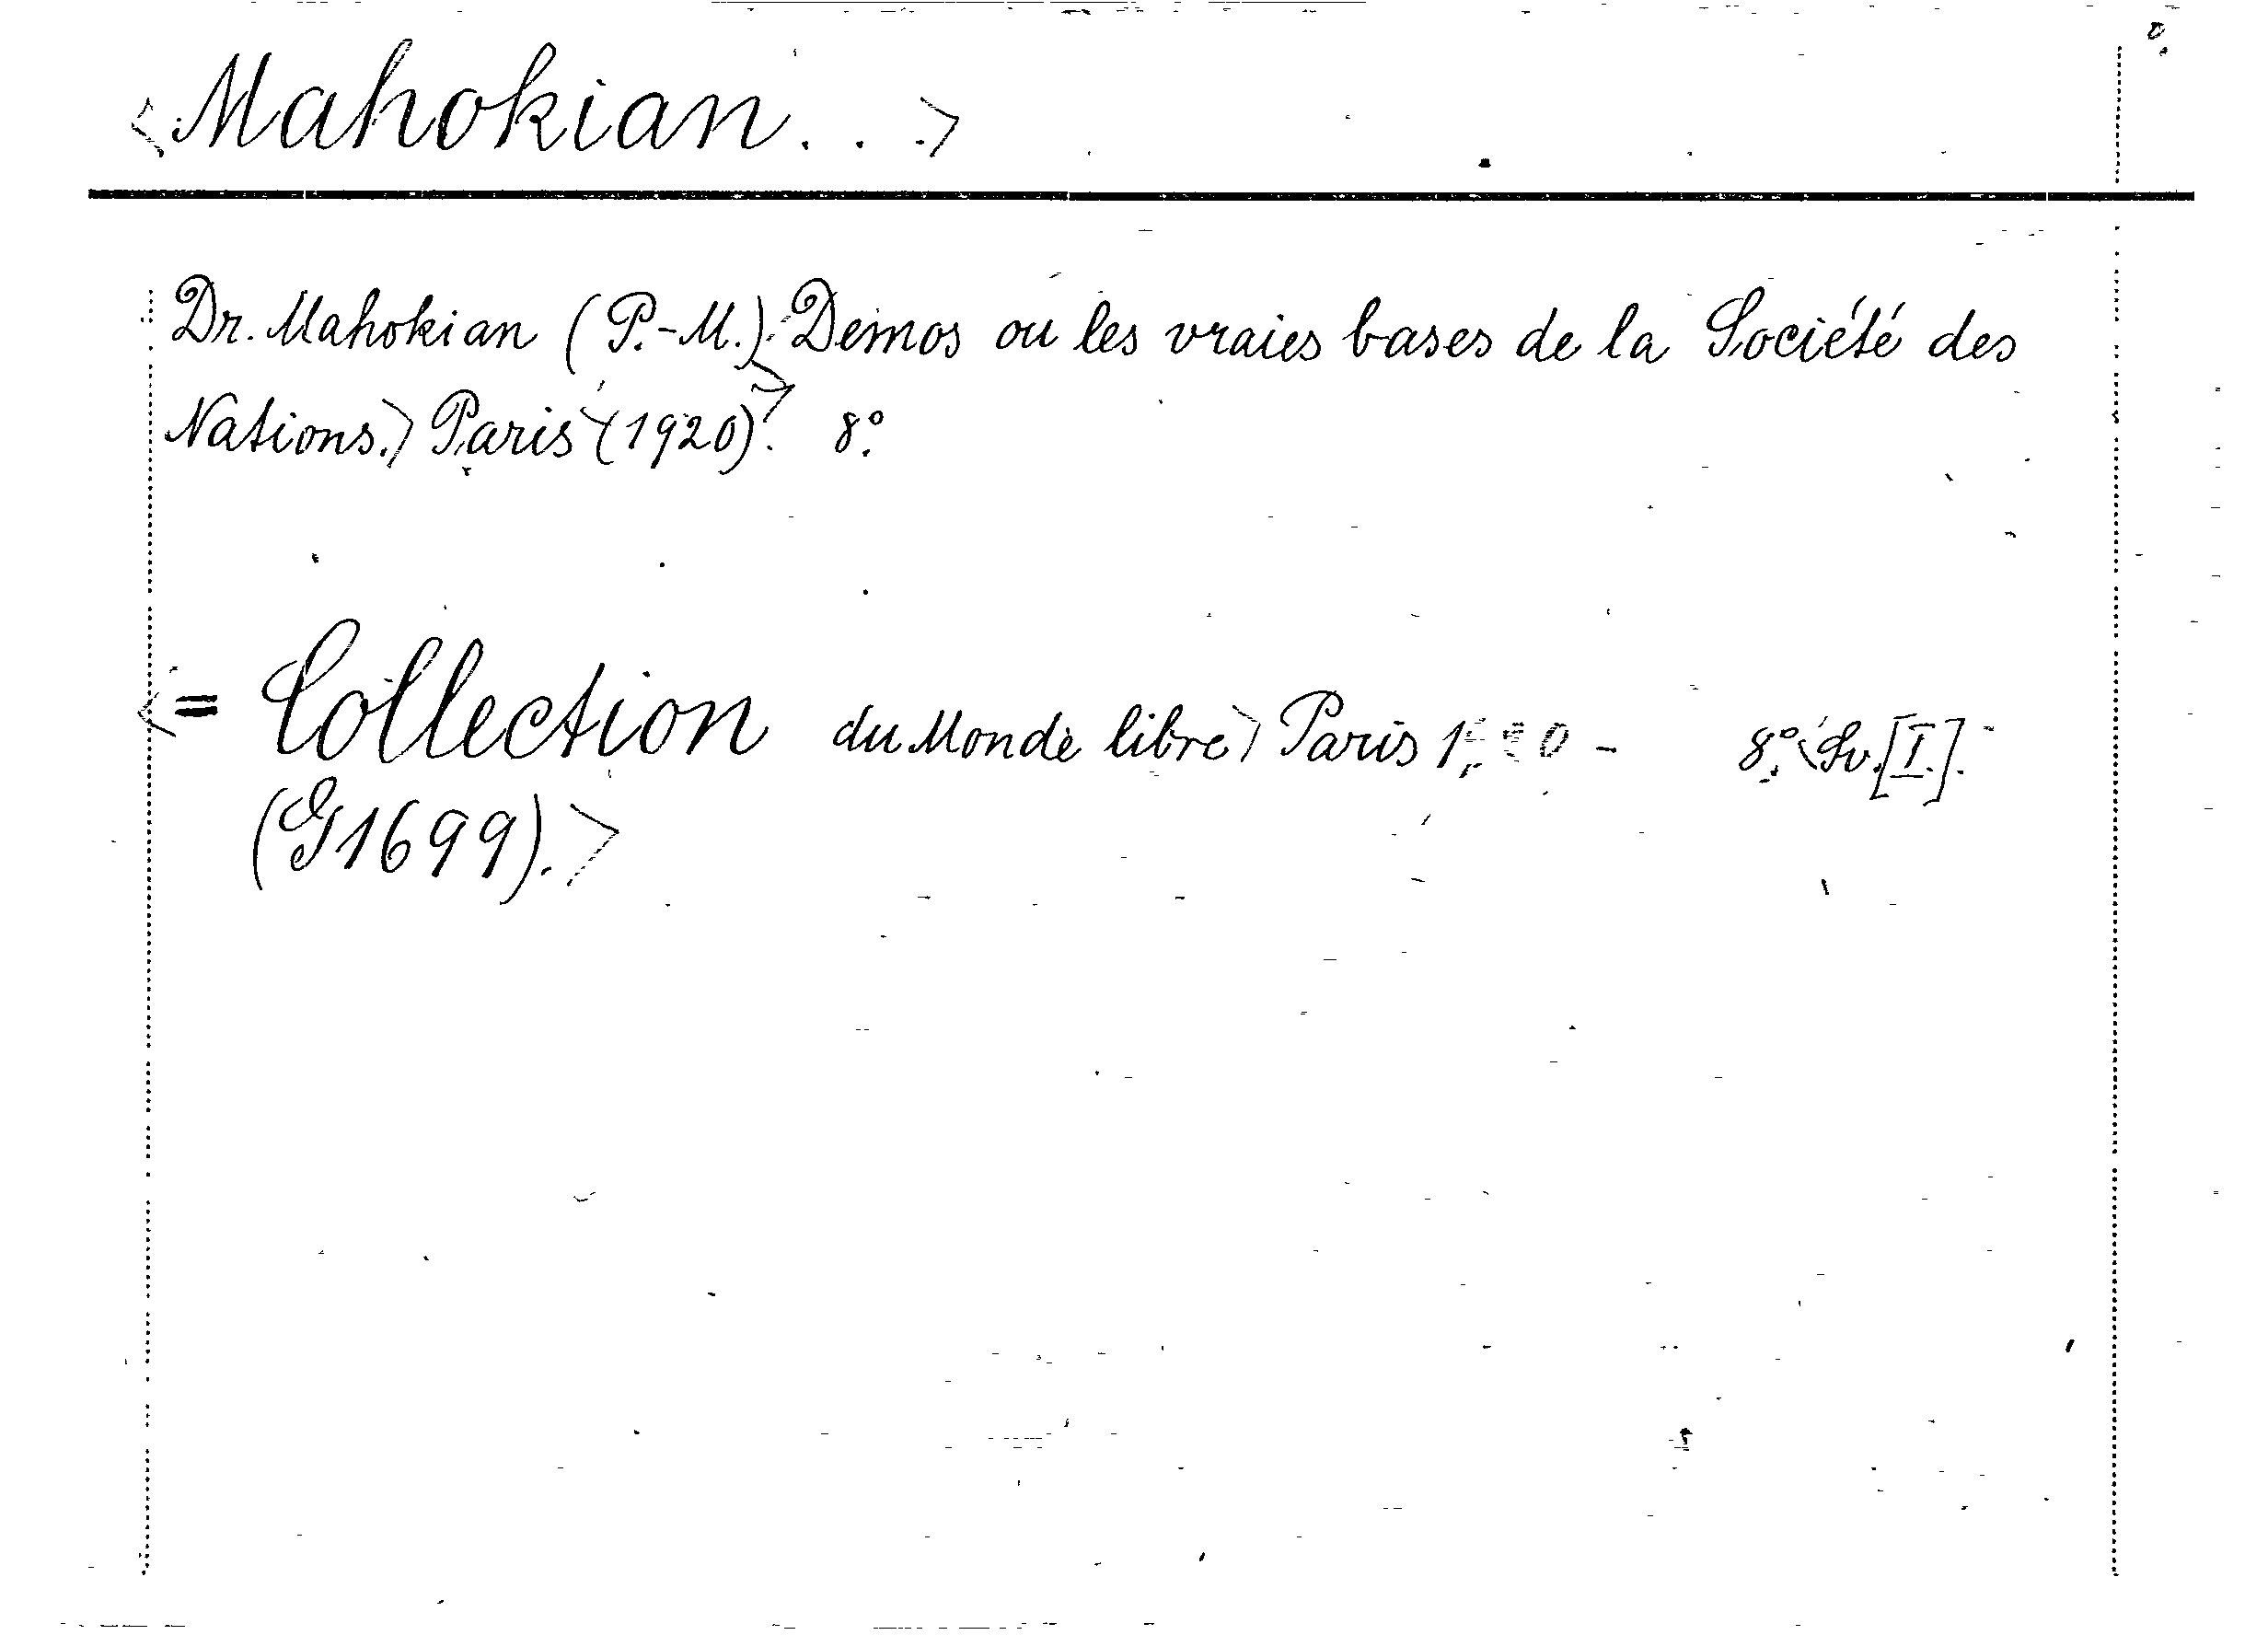 <Mahokian...>
Dr. Mahokian (P.-M.): Demos ou les vraies bases de la Société des
Nations.> Paris <(1920)>. 8º.
<= Collection du Monde libre> Paris 8º. <Sv. [I].
(G1699).>